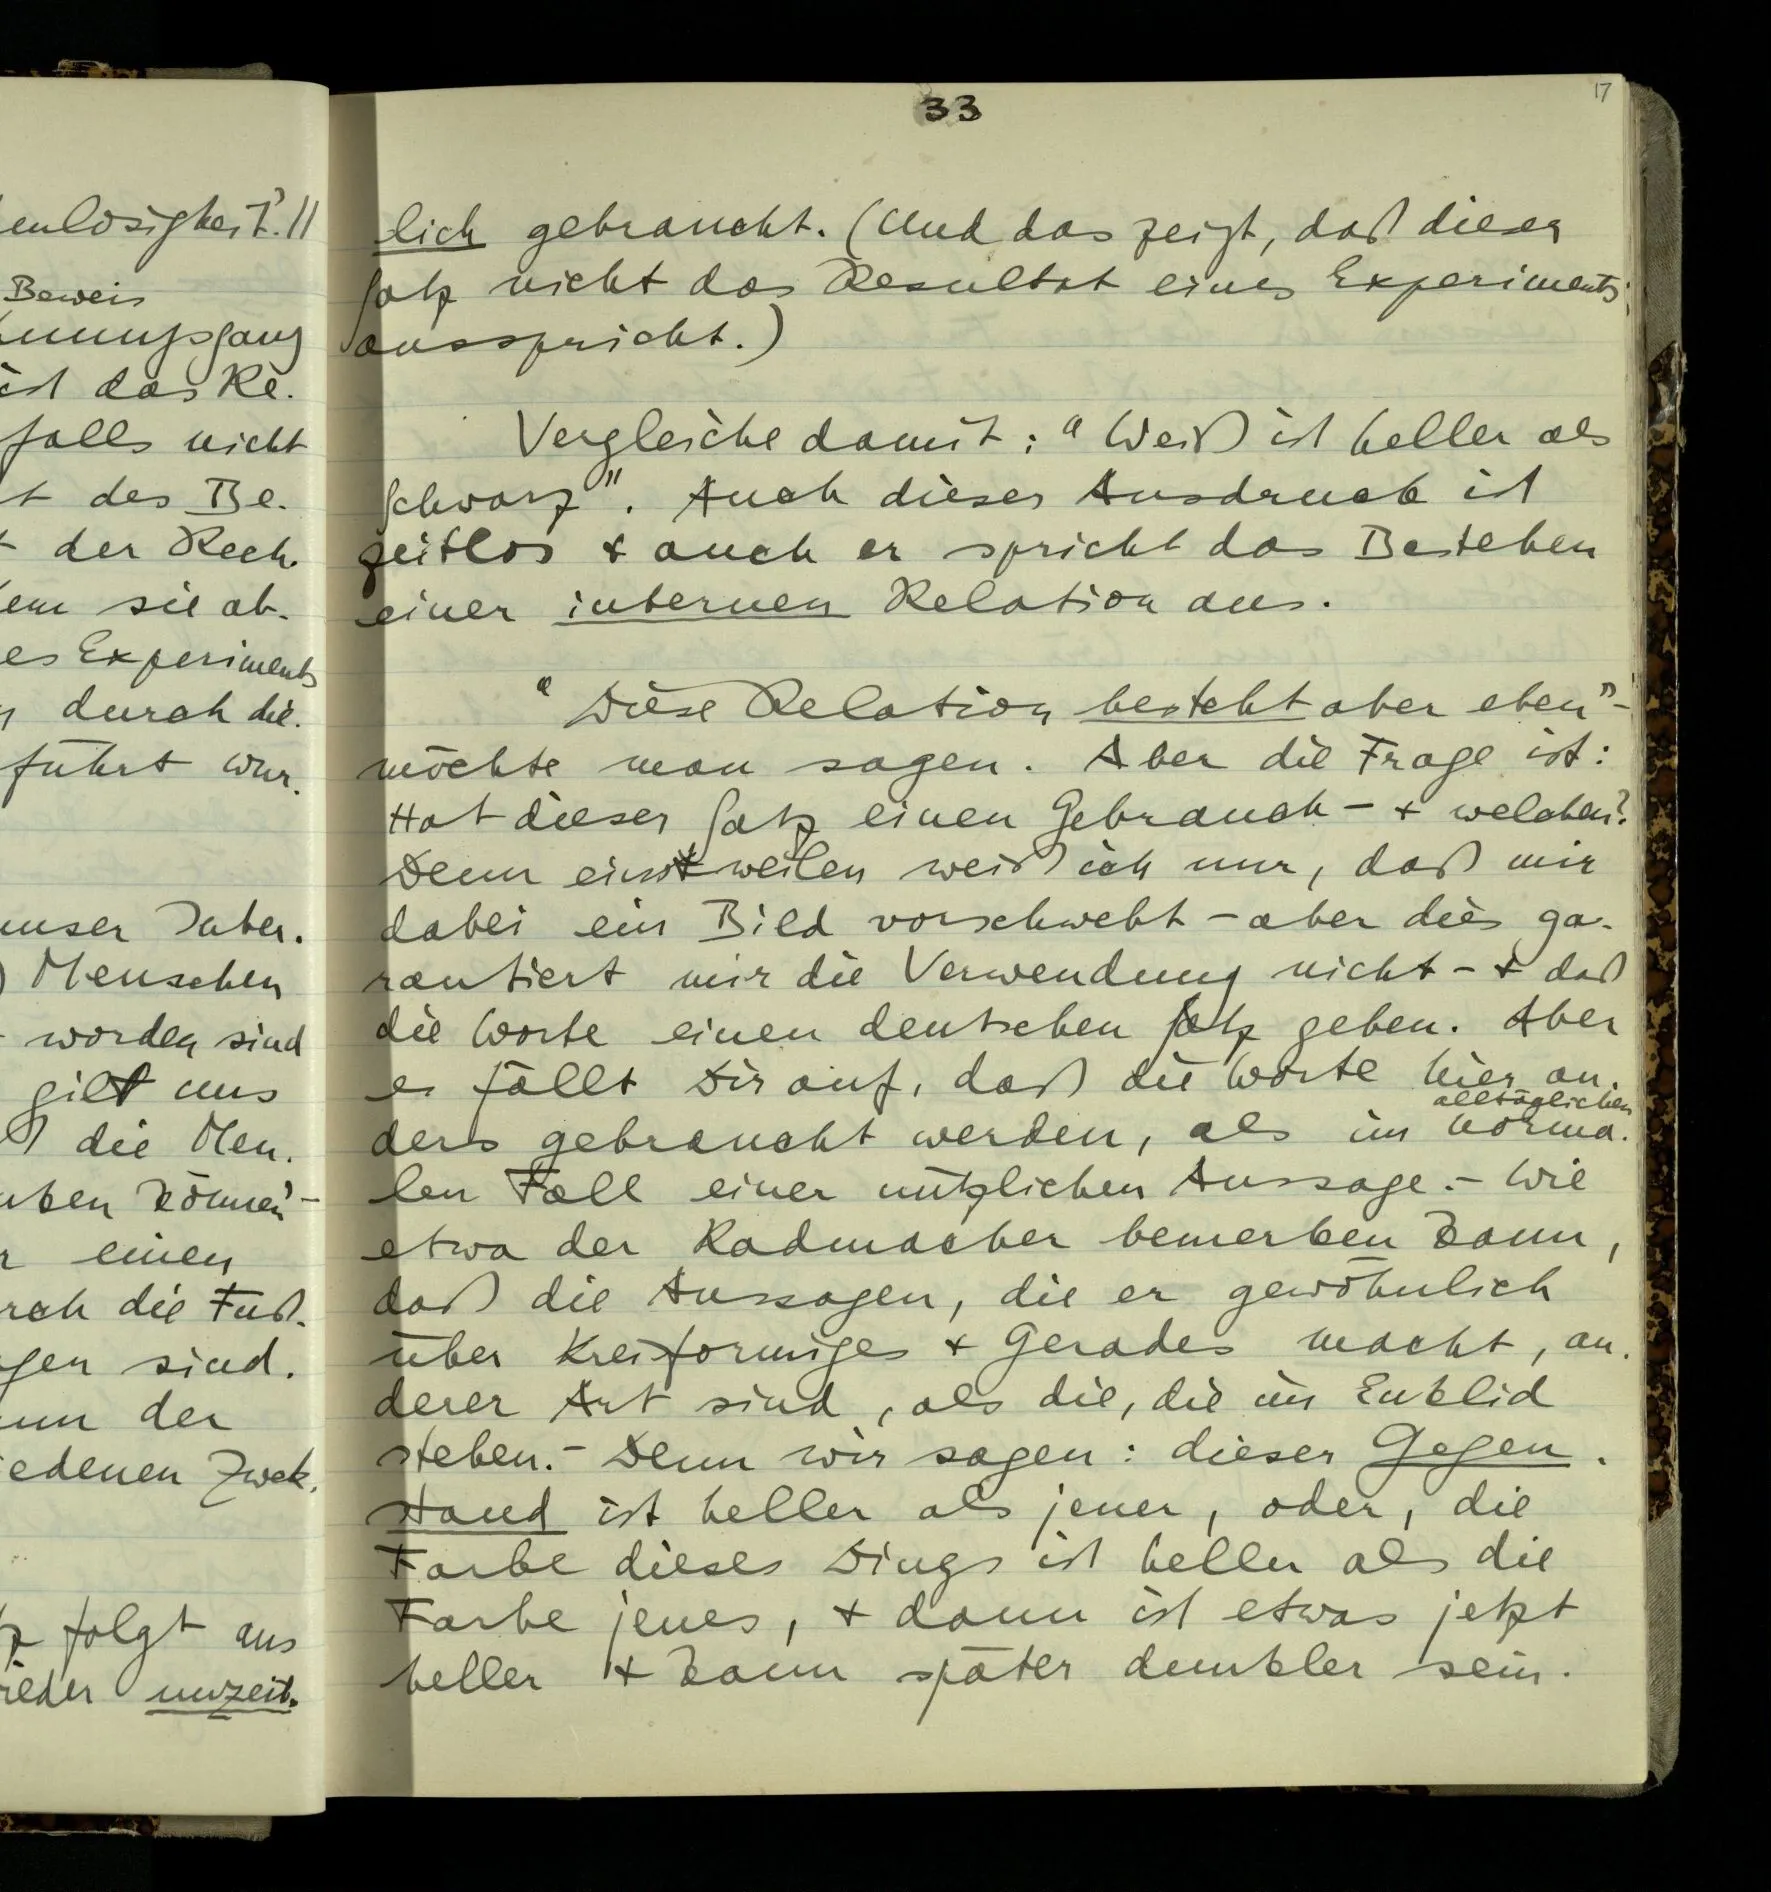 enlosigkeit'. //
Beweis
nungsgang
ist das Re.
falls nicht
t des Be.
t der Rech.
em sie ab.
es Experiments
durch die.
führt wur.
unser Inter.
Menschen
worden sind
gilt uns
die Men.
können' –
einen
die Fuß.
gen sind.
der
iedenen Zwek.
folgt aus
unzeit.
33
17
lich gebraucht. (Und das zeigt, daß dieser
Satz nicht das Resultat eines Experiments
ausspricht.)
Vergleiche damit: "Weiß ist heller als
Schwarz". Auch dieser Ausdruck ist
zeitlos & auch er spricht das Bestehen
einer internen Relation aus.
"Diese Relation besteht aber eben" –
möchte man sagen. Aber die Frage ist:
Hat dieser Satz einen Gebrauch – & welchen?
Denn einstweilen weiß ich nur, daß mir
dabei ein Bild vorschwebt – aber dies ga.
rantiert mir die Verwendung nicht – & daß
die Worte einen deutschen Satz geben. Aber
es fällt Dir auf, daß die Worte hier an.
alltäglichen
ders gebraucht werden, als im norma.
len Fall einer nützlichen Aussage. – Wie
etwa der Radmacher bemerken kann,
daß die Aussagen, die er gewöhnlich
über Kreisförmiges & Gerades macht, an.
derer Art sind, als die, die im Euklid
stehen. – Denn wir sagen: dieser Gegen.
stand ist heller als jener, oder, die
Farbe dieses Dings ist heller als die
Farbe jenes, & dann ist etwas jetzt
heller & kann später dunkler sein.